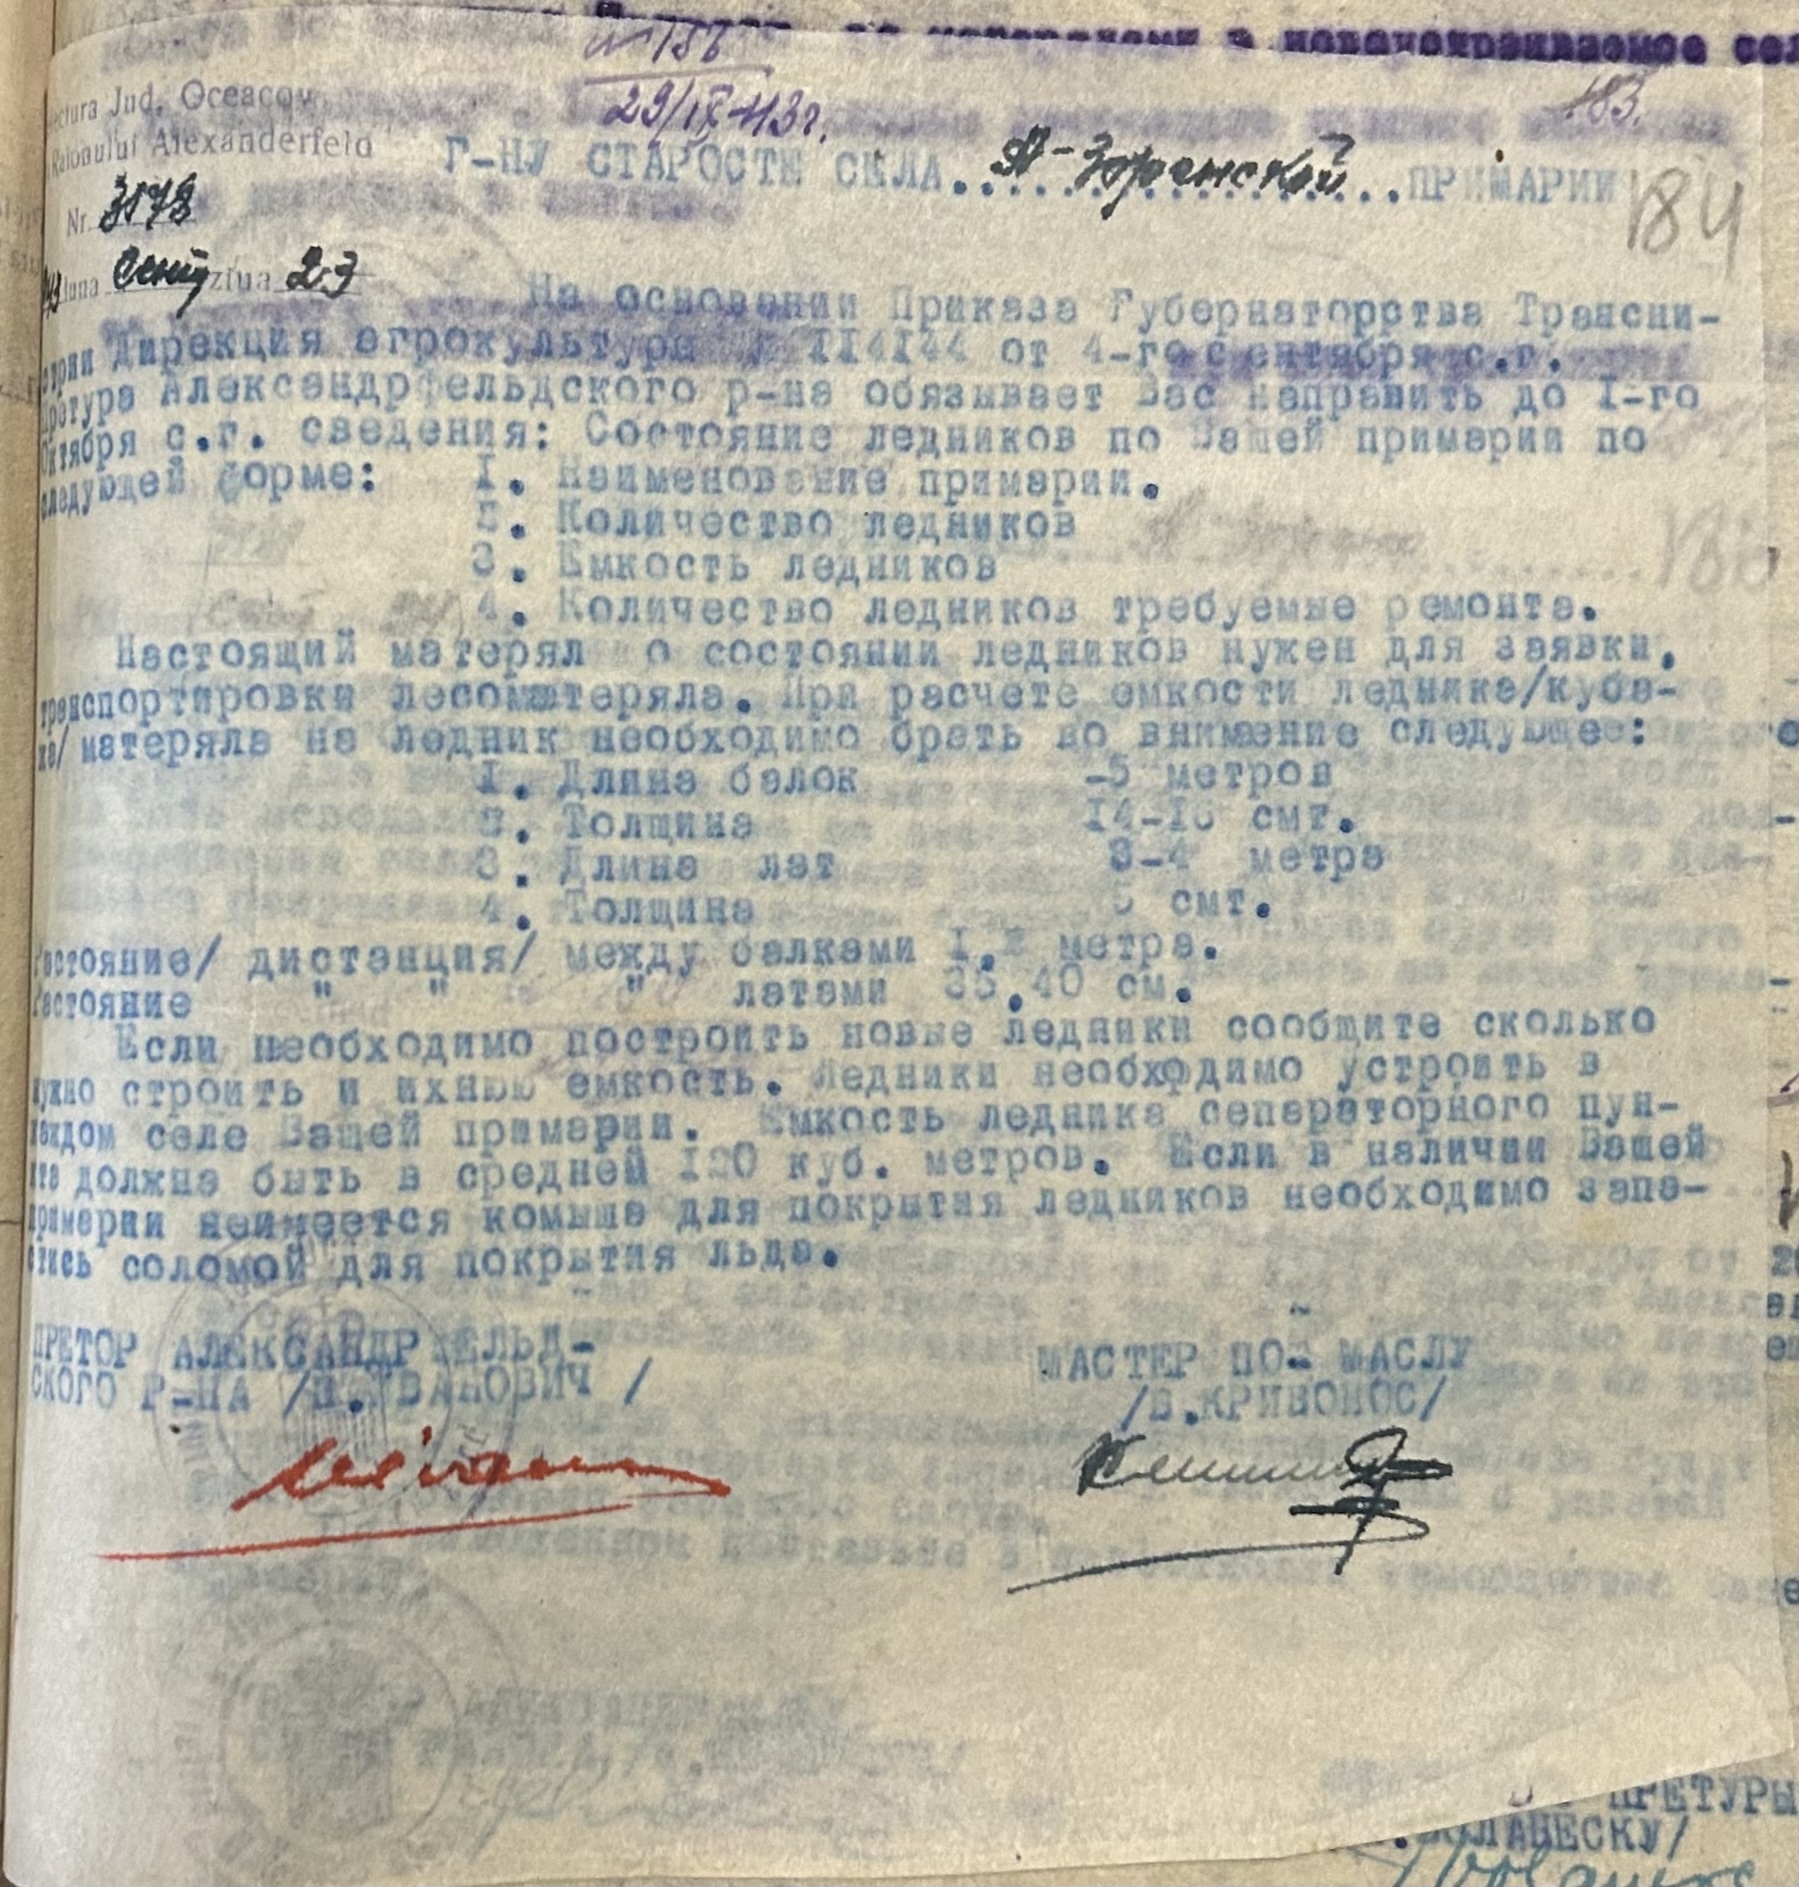 № 156
29/IX-43г.
183.
184
ectura Jud. Oceacov
Raionului Alexanderfeld
Nr. 3178
luna Сент ziua 23
Г-НУ СТАРОСТЕ СЕЛА.. ..ПРИМАРИИ
На основании Приказа Губернаторства Трансни-
стрии Дирекция агрокультуры 114144 от 4-го сентября с.г.
Претура Александрфельдского р-на обязывает Вас направить до I-го
Октября с.г. сведения: Состояние ледников по Вашей примарии по
следующей форме: I. Наименование примарии.
2. Количество ледников
3. Емкость ледников
4. Количество ледников требуемые ремонта.
Настоящий матерял о состоянии ледников нужен для заявки,
транспортировки лесоматеряла. При расчете емкости ледника/куба-
жа/ матеряла на ледник необходимо брать во внимание следующее:
I. Длина балок -5 метров
2. Толщина 14-16 смт.
3. Длина лат 3-4 метра
4. Толщина смт.
стояние/ дистанция/ между балками I, метра.
стояние " " " " латами 35,40 см.
Если необходимо построить новые ледники сообщите сколько
нужно строить и ихнюю емкость. Ледники необходимо устроить в
каждом селе Вашей примарии. Емкость ледника сепараторного пун-
кта должна быть в средней 120 куб. метров. Если в наличии Вашей
примарии неимеется комыша для покрытия ледников необходимо запа-
стись соломой для покрытия льда.
ПРЕТОР АЛЕКСАНДРФЕЛЬД-
СКОГО Р-НА /П.ИВАНОВИЧ /
МАСТЕР ПО МАСЛУ
/В.КРИВОНОС/
ПРЕТУРЫ